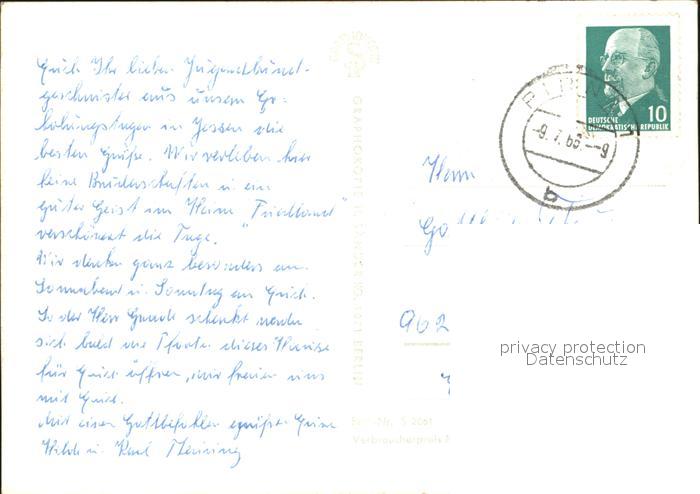 Euch Ihr lieben Jugendbund-
geschwister aus unsern Er-
holungstagen in Jessen die
besten Grüße. Wir verleben hier
feine Bruderschaften u. ein
guter Geist im Heime "Friedland"
verschönert die Tage.
Wir denken ganz besonders am
Sonnabend u. Sonntag an Euch.
So der Herr Gnade schenkt werden
sich bald die Pforten dieses Hauses
für Euch öffnen, wir freuen uns
mit Euch.
Mit einem Gottbefohlen grüßt Eure
Hilde u. Karl
GRAPHOKOPIE H. SANDER KG, 1071 BERLIN
Best.-Nr. S 2061
Verbraucherpreis
DEUTSCHE
DEMOKRATISCHE REPUBLIK
10
-9. 7. 66 - 9
a
Herrn
962
privacy protection
Datenschutz